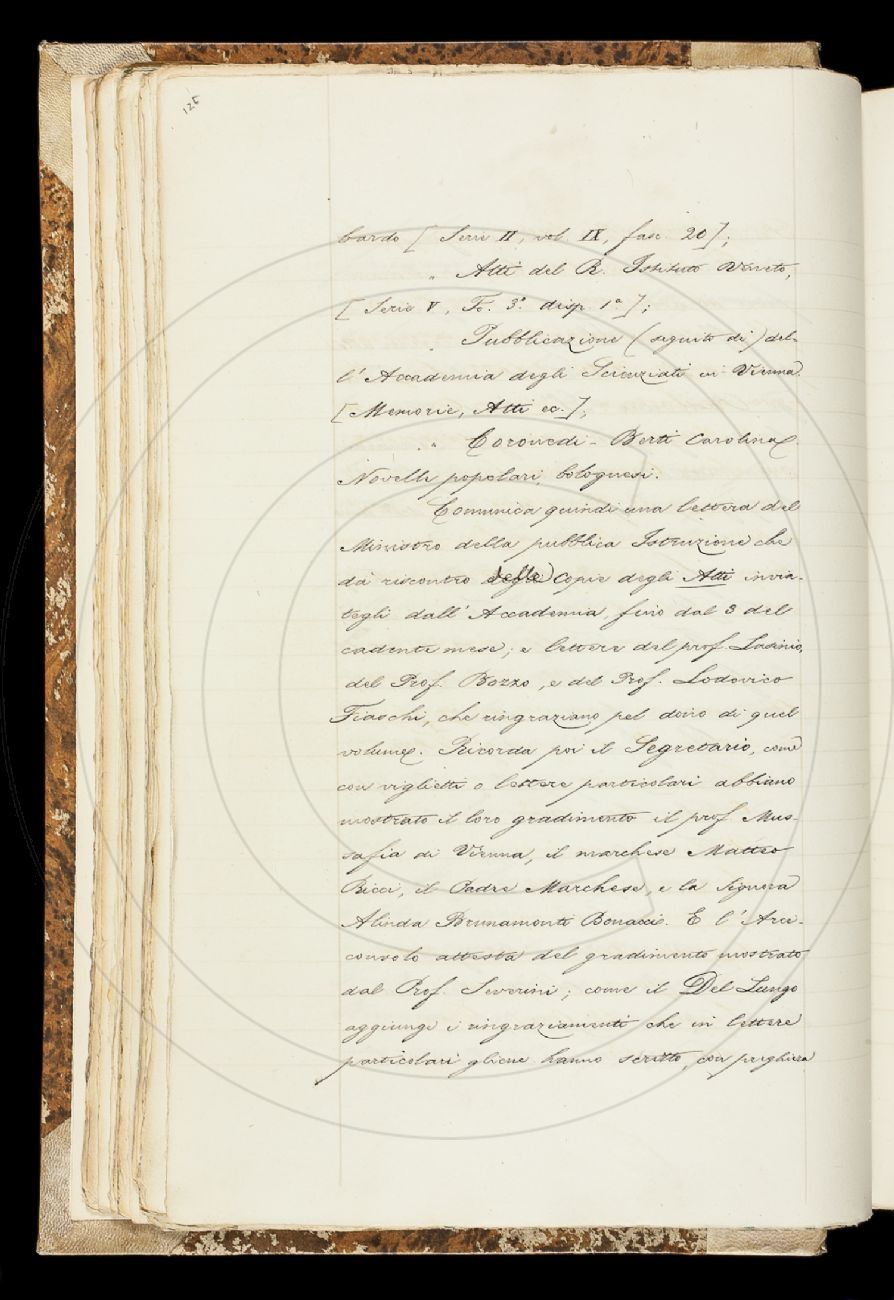 126
bardo [Serie II, vol. IX, fasc. 20];
" Atti del R. Istituto Veneto,
[Serie V, To. 3º. disp. 1ª];
" Pubblicazione (seguito di) del-
l'Accademia degli Scienziati in Vienna.
[Memorie, Atti ec.];
" Coronedi-Berti Carolina.
Novelle popolari bolognesi.
Comunica quindi una lettera del
Ministro della pubblica Istruzione che
dà riscontro delle copie degli Atti invia-
tegli dall'Accademia fino dal 3 del
cadente mese; e lettere del prof. Lasinio,
del Prof. Bozzo, e del Prof. Lodovico
Fiaschi, che ringraziano pel dono di quel
volume. Ricorda poi il Segretario, come
con viglietti o lettere particolari abbiano
mostrato il loro gradimento il prof. Mus-
safia di Vienna, il marchese Matteo
Ricci, il Padre Marchese, e la Signora
Alinda Brunamonti Bonacci. E l'Arci-
consolo attesta del gradimento mostrato
dal Prof. Severini; come il Del Lungo
aggiunge i ringraziamenti che in lettere
particolari gliene hanno scritto, con preghiera